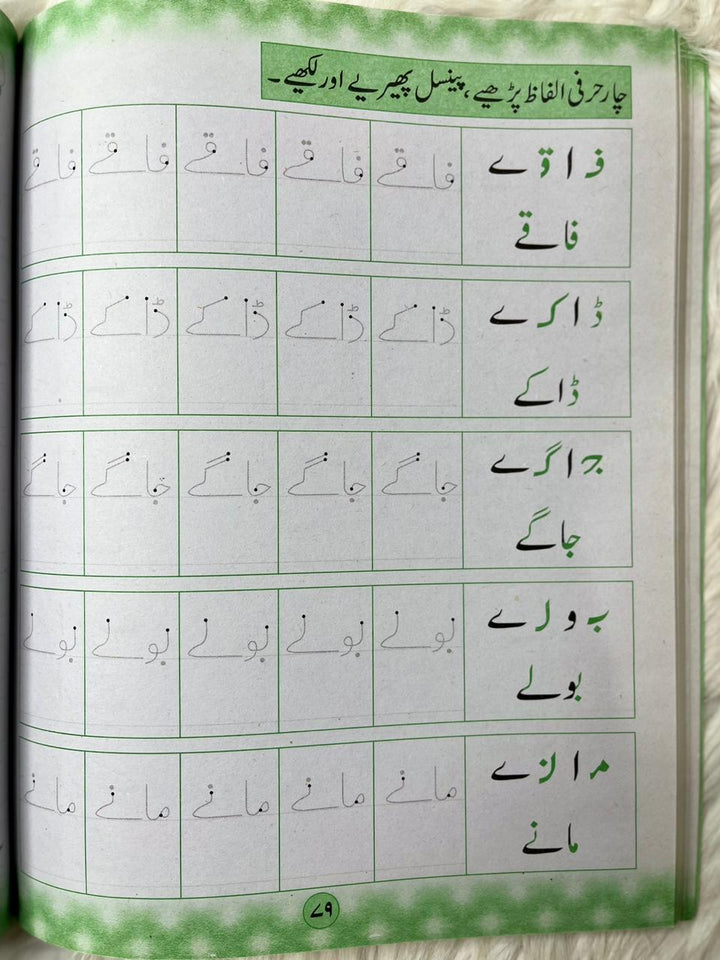 چار حرفی الفاظ پڑھیے، پینسل پھیریے اور لکھیے۔
فـ ا قـ ے
فاقے فاقے فاقے فاقے فاقے
فاقے
ڈ ا کـ ے
ڈاکے ڈاکے ڈاکے ڈاکے ڈاکے
ڈاکے
جـ ا گـ ے
جاگے جاگے جاگے جاگے جاگے
جاگے
بـ و لـ ے
بولے بولے بولے بولے بولے
بولے
مـ ا نـ ے
مانے مانے مانے مانے مانے
مانے
۷۹